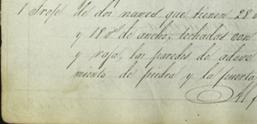 1 Troje de dos naves que tienen 28
y 18 de ancho, techadas con
y raja, las paredes de adove
miento de piedra y la puerta